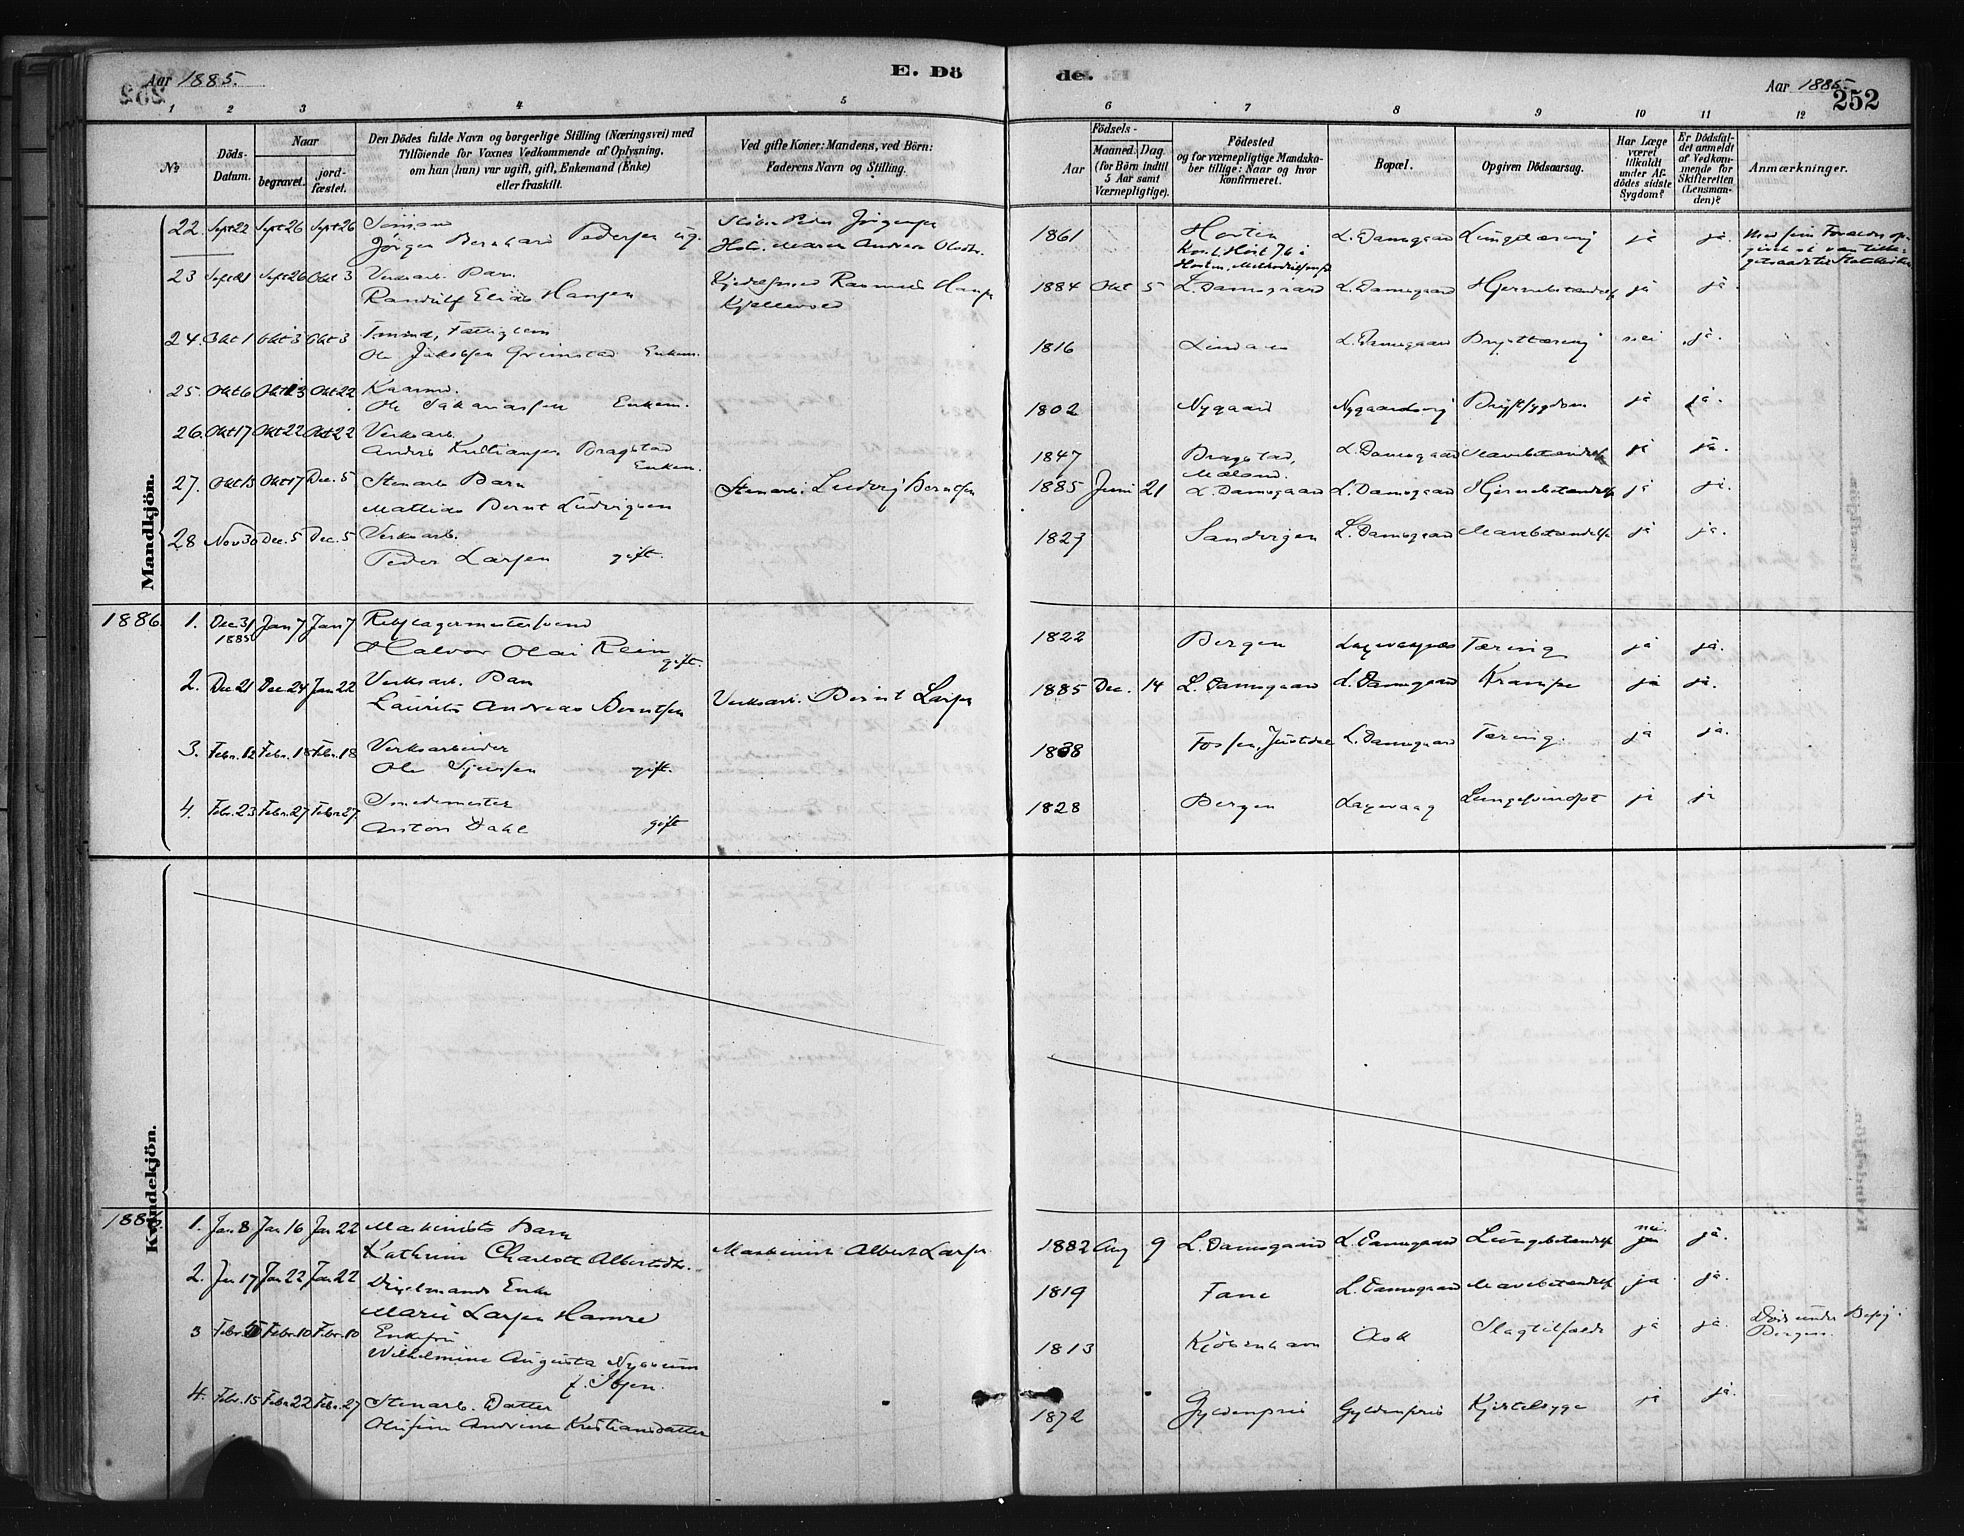 Aar 1885.
E. Dö
de.
Aar 1885.
252
1 2 3 4 5 6 7 8 9 10 11 12
No
Döds-Datum.
Naar
begravet.
jord-fæstet.
Den Dödes fulde Navn og borgerlige Stilling (Næringsvei) med
Tilföiende for Voxnes Vedkommende af Oplysning,
om han (hun) var ugift, gift, Enkemand (Enke)
eller fraskilt.
Ved gifte Koner: Mandens, ved Börn:
Faderens Navn og Stilling.
Födsels-
Aar
Maaned. Dag
(for Börn indtil
5 Aar samt
Værnepligtige).
Födested
og for værnepligtige Mandska-
ber tillige: Naar og hvor
konfirmeret.
Bopæl.
Opgiven Dödsaarsag.
Har Læge
været
tilkaldt
under Af-
dödes sidste
Sygdom?
Er Dödsfal-
det anmeldt
af Vedkom-
mende for
Skifteretten
(Lensman-
den)?
Anmærkninger.
Mandkjön.
22. Sept 22 Sept 26 Sept 26 Sömand
Jörgen Bernhard Pedersen ug. 1861 Horten L. Damsgaard Lungetæring ja ja.
23 Sept 21 Sept 26 Okt 3 Verksarb. Barn
Randulf Elias Hansen Rasmus 1884 Okt 5 L. Damsgaard L. Damsgaard Hjernebetændelse ja ja.
24. Okt 1 Okt 3 Okt 3
Ole Jakobsen Grimstad Enkem. 1816 Lindaas L. Damsgaard Brysttæring nei ja.
25. Okt 6 Okt 13 Okt 22 Kaarmd.
Ole Sakariassen Enkem. 1802 Nygaard Nygaardsvig Brystsygdom ja ja.
26. Okt 17 Okt 22 Okt 22 Verksarb.
Anders Kristiansen Bragstad
Enkem. 1847 Bragstad, L. Damsgaard Mavebetændelse ja ja.
27. Okt 13 Okt 17 Dec. 5 Stenarb. Barn
Mathias Bernt Ludvigsen Stenarb. Ludvig Berntsen 1885 Juni 21 L. Damsgaard L. Damsgaard Hjernebetændelse ja ja.
28 Nov 30 Dec. 5 Dec. 5 Verksarb.
Peder Larsen gift. 1827 Sandvigen L. Damsgaard Mavebetændelse ja ja.
1886. 1. Dec 31 1885 Jan 7 Jan 7 Rebslagermestersvend
Halvor Olai Rein gift. 1822 Bergen Laxevaagnæs Tæring ja ja.
2. Dec 21 Dec 24 Jan 22 Verksarb. Barn
Laurits Andreas Berntsen Verksarb. Bernt Larsen 1885 Dec. 14 L. Damsgaard L. Damsgaard Krampe ja ja.
3. Febr. 12 Febr. 18 Febr. 18 Verksarbeider
Ole Sjursen gift. 1838 Fossen, Justdal L. Damsgaard Tæring. ja ja.
4. Febr. 23 Febr. 27 Febr. 27 Smedemester
Anton Dahl gift 1828 Bergen Laxevaag ja ja
Kvindekjön.
1886. 1. Jan 8. Jan 16 Jan 22 Maskinists Barn
Kathrine Charlotte Albertsdtr. Maskinist Albert Larsen 1882 Aug 9 L. Damsgaard L. Damsgaard Lungebetændelse nei ja.
2. Jan 17 Jan 22 Jan 22 Enke
Marie Larsen Hamre 1819 Fane L. Damsgaard Mavebetændelse ja ja.
3 Febr. 5 Febr. 10 Febr. 10 Enkefru
Wilhelmine Augusta Nygreen
f. Ibsen. 1813 Kjöbenhavn Ask Slagtilfælde ja ja. Död under Besög i
Bergen.
4. Febr. 15 Febr. 22 Febr. 27 Stenarb. Datter
Olufine Andrine Kristiansdatter 1872 Gyldenpris Gyldenpris Kjertelsyge ja ja.